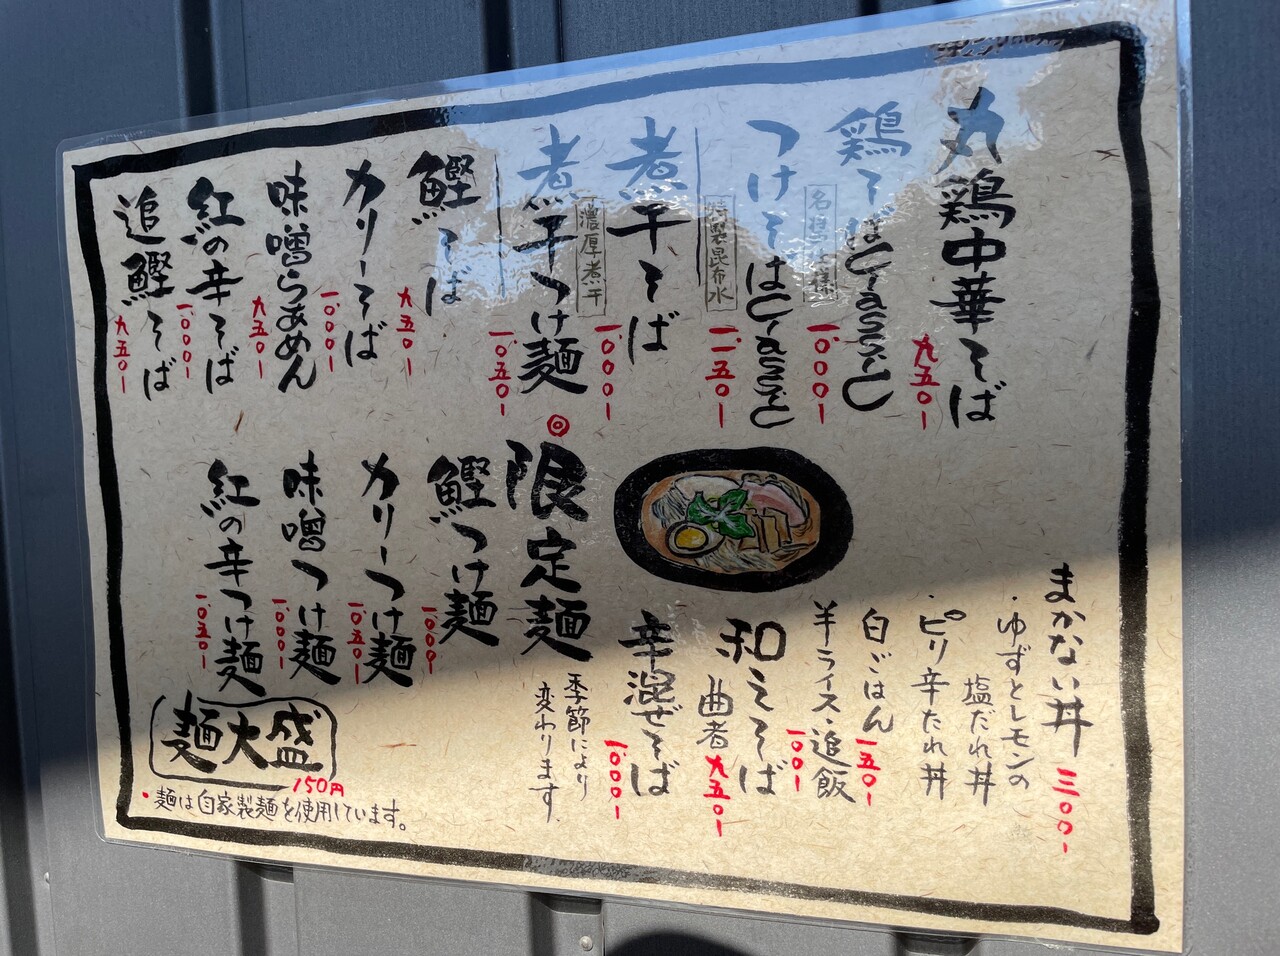 丸鶏中華そば
九五〇ー
鶏そばclassic
一、〇〇〇ー
つけそばclassic
特製昆布水
一、一五〇ー
煮干そば
一、〇〇〇ー
濃厚煮干
煮干つけ麺
一、〇五〇ー
鰹そば
九五〇ー
カリーそば
一、〇〇〇ー
味噌らぁめん
九五〇ー
紅の辛そば
一、〇〇〇ー
追鰹そば
九五〇ー
まかない丼 三〇〇ー
・ゆずとレモンの
塩だれ丼
・ピリ辛たれ丼
白ごはん 一五〇ー
半ライス・追飯
一〇〇ー
和えそば
曲者 九五〇ー
辛混ぜそば
一、〇〇〇ー
◎限定麺
季節により
変わります
鰹つけ麺
一、〇〇〇ー
カリーつけ麺
一、〇五〇ー
味噌つけ麺
一、〇〇〇ー
紅の辛つけ麺
一、〇五〇ー
麺大盛
150円
・麺は自家製麺を使用しています。